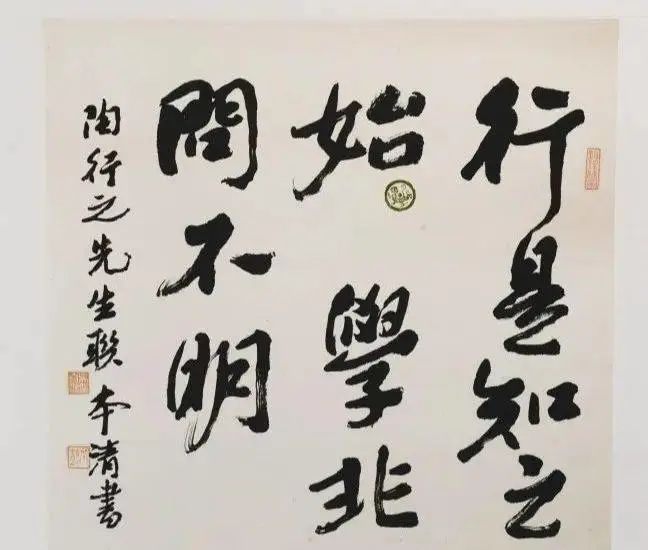 行是知之
始 學非
問不明
陶行之先生聯 本清書